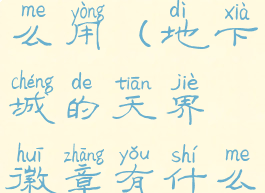 me yòng dì xià
么用（地下
chéng de tiān jiè
城的天界
huī zhāng yǒu shí me
徽章有什么